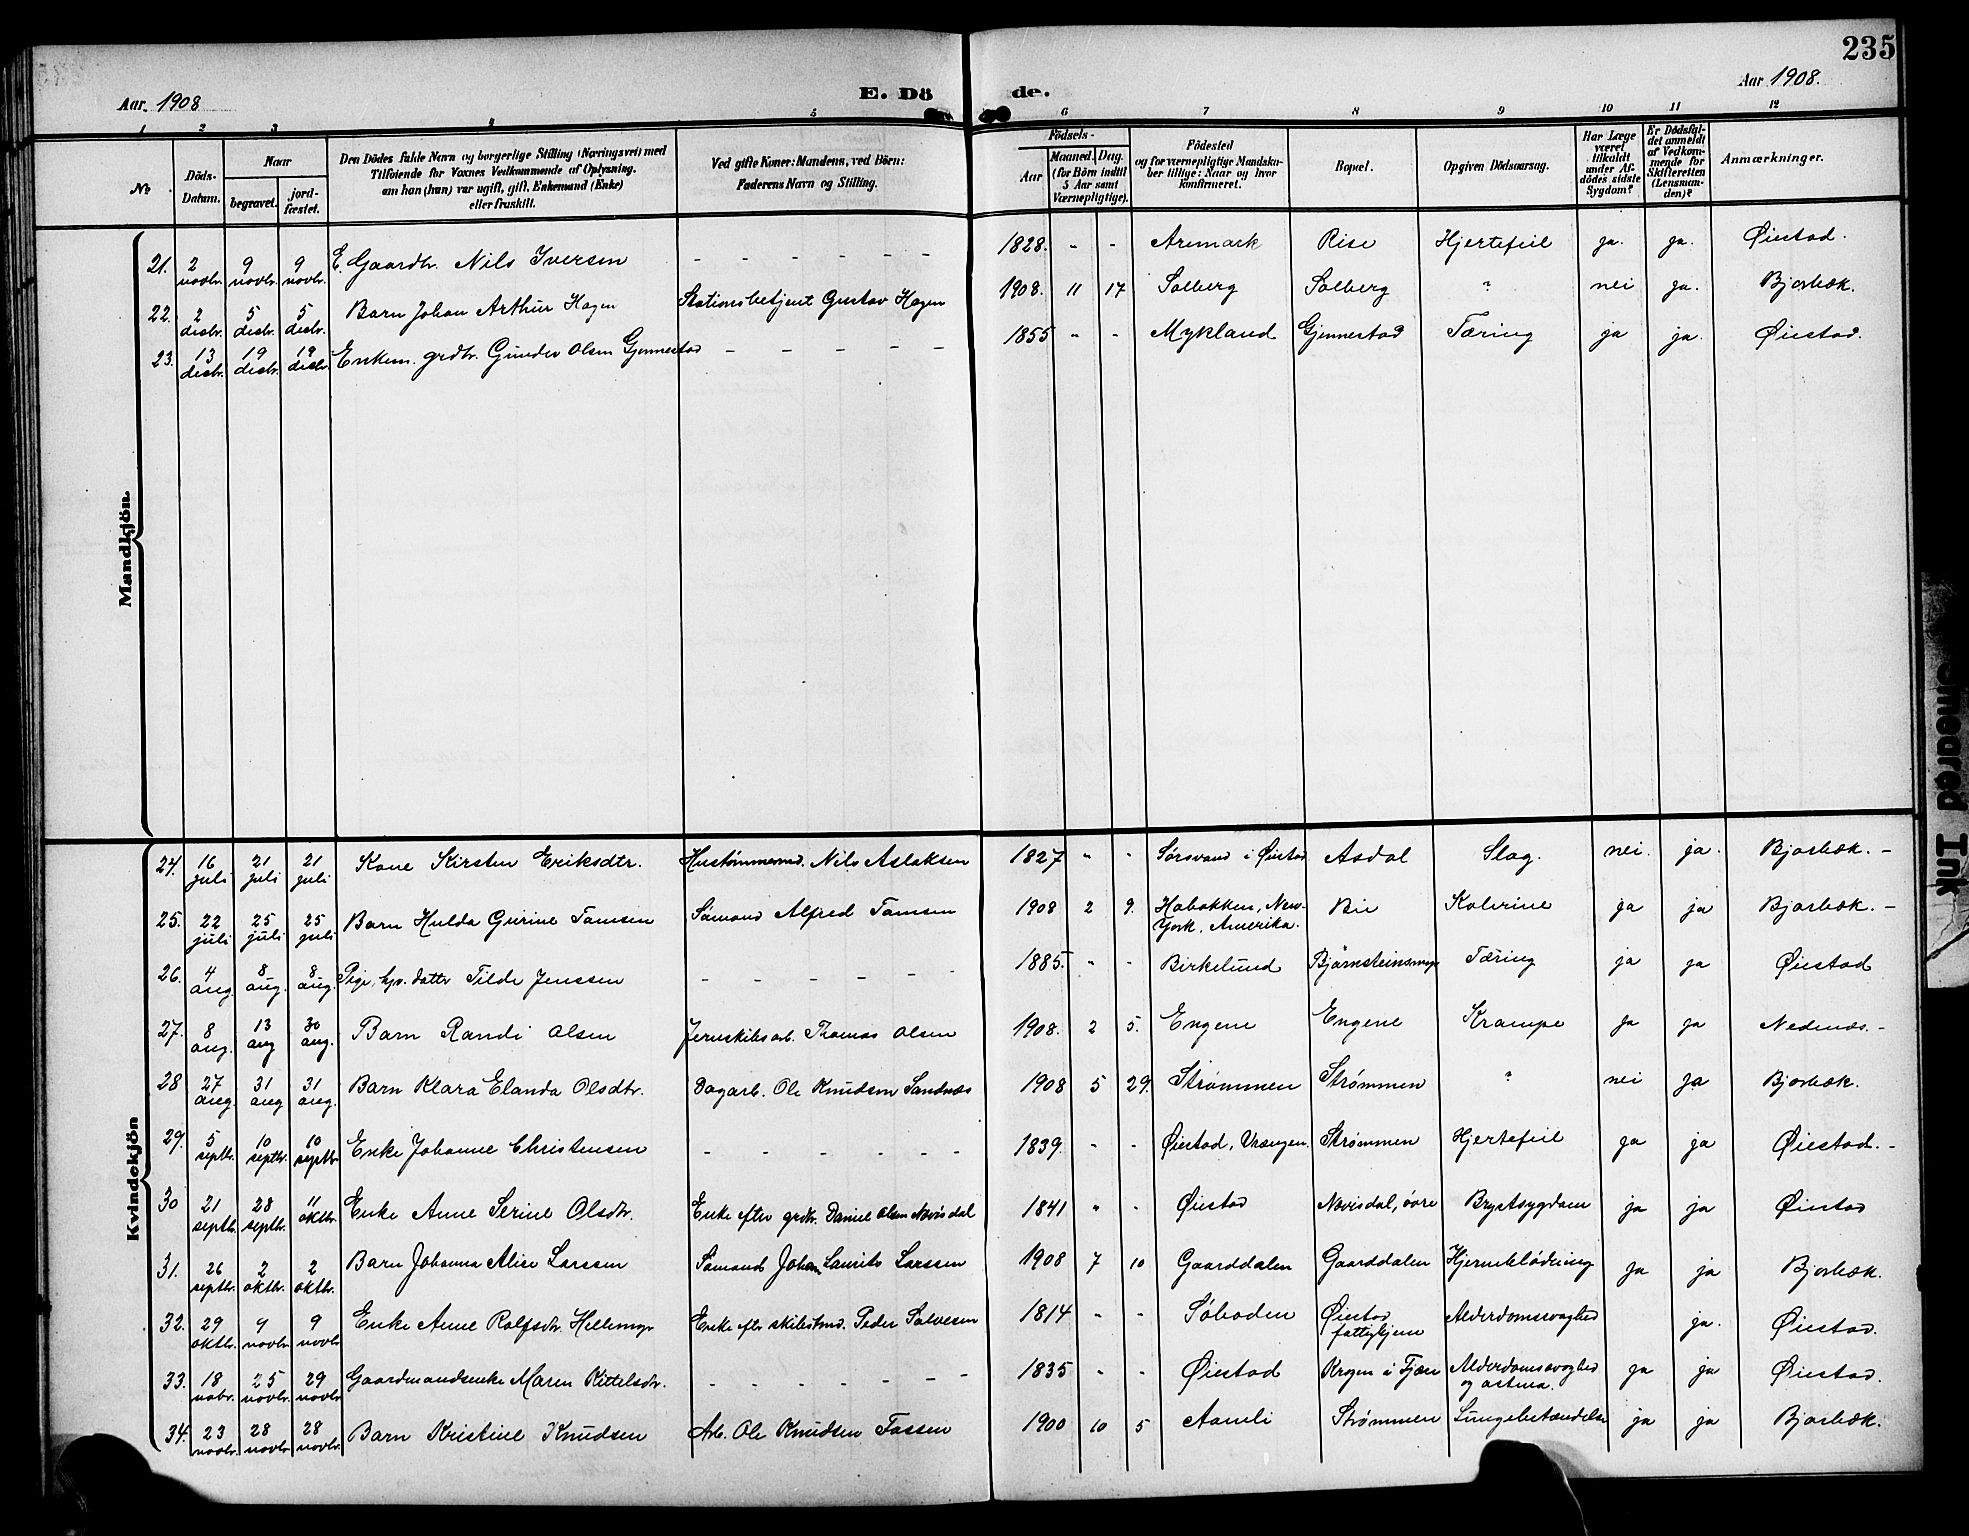 235
Aar. 1908
E. Dö de.
Aar 1908.
1 2 3 4 5 6 7 8 9 10 11 12
No
Döds-
Datum.
Naar
begravet.
jord-
fæstet.
Den Dödes fulde Navn og borgerlige Stilling (Næringsvei) med
Tilföiende for Voxnes Vedkommende af Oplysning.
om han (hun) var ugift, gift, Enkemand (Enke)
eller fraskilt.
Ved gifte Koner: Mandens, ved Börn:
Faderens Navn og Stilling.
Födsels-
Aar
Maaned. Dag.
(for Börn indtil
5 Aar samt
Værnepligtige).
Födested
og for værnepligtige Mandska-
ber tillige: Naar og hvor
konfirmeret.
Bopæl.
Opgiven Dödsaarsag.
Har Læge
været
tilkaldt
under Af-
dödes sidste
Sygdom?
Er Dödsfal-
det anmeldt
af Vedkom-
mende for
Skifteretten
(Lensman-
den)?
Anmærkninger.
Mandkjön.
21. 2 novbr. 9 novbr. 9 novbr. E. Gaardbr. Nils Iversen - - - - - - 1828. - - Aremark Rise Hjertefeil ja. ja. Øiestad.
22. 2 decbr. 5 decbr. 5 decbr. Barn Johan Arthur Hagen Stationsbetjent Gustav Hagen 1908. 11 17 Solberg Solberg ? nei ja. Bjorbæk.
23. 13 decbr. 19 decbr. 19 decbr. Enkem. grdbr. Gunder Olsen Gjennestad - - - - - 1855 - - Mykland Gjennestad Tæring ja ja. Øiestad.
Kvindekjön
24. 16 juli 21 juli 21 juli Kone Kirsten Eriksdtr. Hustømmermd. Nils Aslaksen 1827 " " Sørsvand i Øiestad Asdal Slag. nei. ja. Bjorbæk. -
25. 22 juli 25 juli 25 juli Barn Hulda Gurine Tomsen Sømand Alfred Tomsen 1908 2 9. Hobokken, New-
York, Amerika. Bie Kolerine ja ja Bjorbæk. -
26. 4 aug. 8 aug. 8 aug. Pige, hjv. datter Tilda Jenssen - - - - - 1885. - - Birkelund Bjørnsteinsmyr Tæring ja ja Øiestad
27. 8 aug. 13 aug 30 aug. Barn Randi Olsen Jernskibsarb. Thomas Olsen 1908. 2 5. Engene Engene Krampe ja ja Nedenæs. -
28 27 aug. 31 aug 31 aug. Barn Klara Elanda Olsdtr. Dagarb. Ole Knudsen Sandnæs 1908 5 29. Strømmen Strømmen ? nei ja Bjorbæk.
29. 5 septbr. 10 septbr. 10 septbr. Enke Johanne Christensen - - - - - - 1839. - - Øiestad, Vrængen. Strømmen Hjertefeil ja ja Øiestad. -
30 21 septbr. 28 septbr. 11 oktbr. Enke Anne Serine Olsdtr. Enke efter grdbr. Daniel Olsen Nævisdal 1841 " - Øiestad Nævisdal, övre Brystsygdom ja ja Øiestad
31. 26 septbr. 2 oktbr. 2 oktbr. Barn Johanna Alise Larssen Sømand Johan Laurits Larssen 1908 7 10 Gaarddalen Gaarddalen Hjerneblødning ja ja Bjorbæk.
32. 29 oktbr. 9 novbr. 9 novbr. Enke Anne Rolfsdtr. Hellemyr Enke efter skibstmd. Peder Salvesen 1814 - - Søboden Øiestad
fattighjem Alderdomssvaghed ja. Øiestad.
33. 18 nobr. 25 novbr. 29 novbr. Gaardmandsenke Maren Kittelsdtr. - - - - - - - 1835 - - Øiestad Krogen i Fjære Alderdomssvaghed
og astma. ja ja Øiestad.
34. 23 novbr. 28 novbr. 28 novbr. Barn Kristine Knudsen Arb. Ole Knudsen Fossen 1900 10 5 Aamli Strømmen Lungebetændelse ja ja Bjorbæk.
Smeared Ink